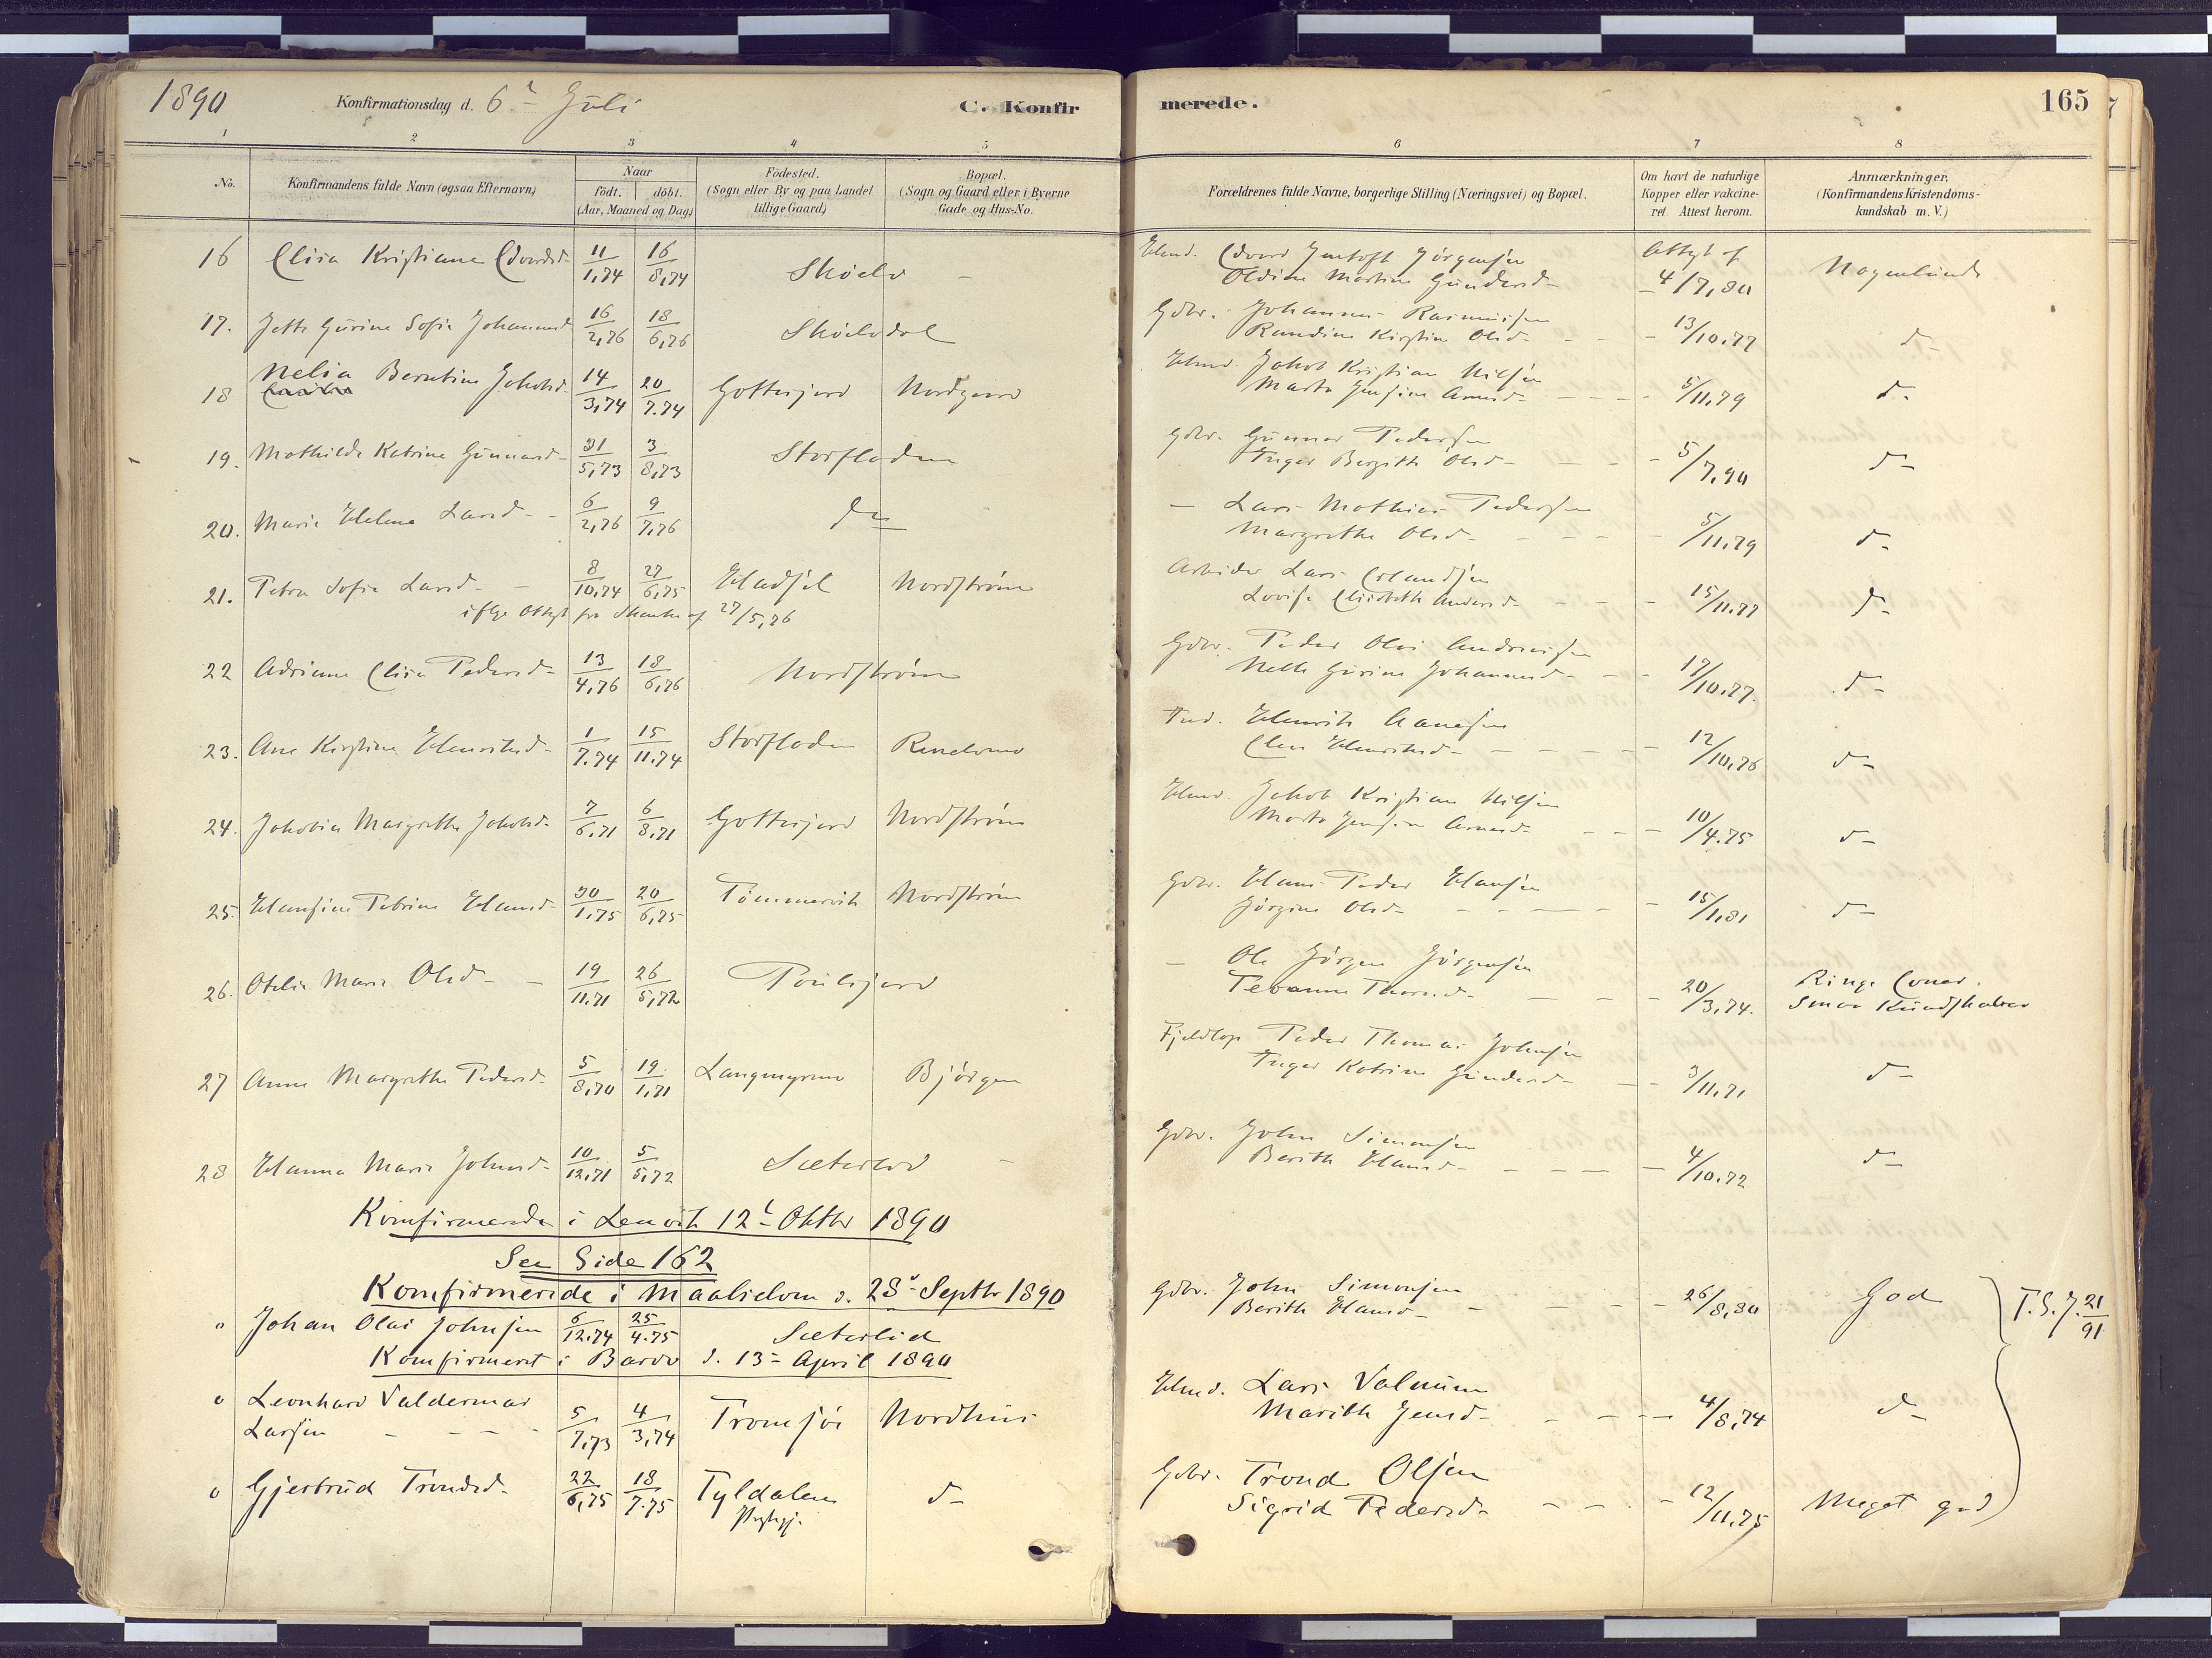 1890 Konfirmationsdag d. 6t Juli C. Konfirmerede. 165
1 2 3 4 5 6 7 8
No. Konfirmandens fulde Navn (ogsaa Efternavn) Naar födt. döbt. (Aar, Maaned og Dag) Födested. (Sogn eller By og paa Landet tillige Gaard) Bopæl. (Sogn og Gaard eller i Byerne Gade og Hus-No. Forældrenes fulde Navne, borgerlige Stilling (Næringsvei) og Bopæl. Om havt de naturlige Kopper eller vakcineret Attest herom. Anmærkninger. (Konfirmandens Kristendomskundskab m. V.)
16 Elisa Kristiane Edvardsd. 11/1,74 16/8,74 Sköelv Edvard Jentoft Jørgensen Attest af
Oldine Martine Gundersd. 4/7,80 Nogenlunde
17. Jette Gurine Sofie Johannesd. 16/2,76 18/6,76 Sköelvdal Gdbr. Johannes Rasmussen
Randine Kirstine Olsd. 13/10.77 do
18 Nelia Berntine Jakobsd. 14/3,74 20/7.74 Gottesjord Nordgaard Jakob Kristian Nilsen
Marta Jensine Arnesd. 5/11,79 do
19. Mathilde Katrine Gunnarsd. 31/5,73 3/8,73 Storfloden Gdbr. Gunnar Pedersen
Inger Bergith Olsd. 5/7,90 do
20. Marie Helene Larsd. 6/2,76 9/7,76 do Lars Mathias Pedersen
Margrethe Olsd. 5/11,79 do
21. Petra Sofie Larsd. 8/10,74 27/6,75 Hadsel Nordstrøm Arbeider Lars Erlandsen
Lovise Elisabeth Andersd. 15/11.77 do
27/5,76
22 Adriane Elisa Pedersd. 13/4,76 18/6,76 Nordstrøm Gdbr. Peder Olai Andreassen
Nella Gurine Johannesd. 17/10.77. do
23. Ane Kirstine Henriksd. 1/7.74 15/11.74 Storfloden Ind. Henrik Hansen
Elen Henriksd. 12/10,76 do
24. Jakobia Margrethe Jakobsd. 7/6.71 6/8,71 Gottesjord Nordstrøm Jakob Kristian Nilsen
Marta Jensine Arnesd. 10/4.75 do
25. Hansine Petrine Hansd. 30/1,75 20/6,75 Tömmervik Nordstrøm Gdbr. Hans Peder Hansen
Jörgine Olsd. 15/1,81 do
26. Otelie Marie Olsd. 19/11.71 26/5,72 Ole Jörgen Jörgensen
20/3,74. Ringe Evner. Smaa Kundskaber
27 Anna Margrethe Pedersd. 5/8,70 19/1,71 Langmyren Bjørgen Peder Thomas Johnsen
Inger Katrine Gundersd. 3/11,71 do
28 Hanna Marie Johnsd. 10/12,71 5/5,72 Sæterlid Gdbr. John Simonsen
Berith Hansd. 4/10.72 do
Komfirmerede i Lenvik 12t Oktbr 1890
See Side 162
Komfirmerede i Maalselven d. 28d Septbr 1890
Johan Olai Johnsen 6/12.74 25/4.75 Sæterlid Gdbr. John Simonsen
Berith Hansd. 26/8,80 God T. S. J. 21/91
Komfirmeret i Bardo d. 13d April 1890
Leonhard Valdemar
Larsen 5/7,73 4/3,74 Tromsöe Nordhus Lars Valnum
Marith Jensd. 4/8,74 do
Gjertrud Trondsd. 22/6,75 18/7.75 Tyldalen Prstgj. do Gdbr. Trond Olsen
Sigrid Pedersd. 12/11,75 Meget god